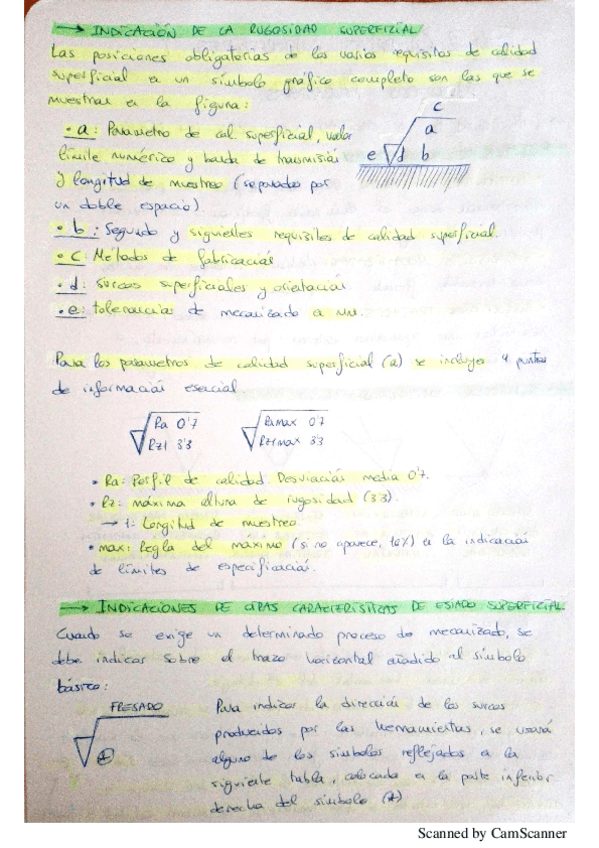 → INDICACIÓN DE LA RUGOSIDAD SUPERFIZIAL
Las posiciones obligatorias de los varios requisitos de calidad
superficial en un símbolo gráfico completo son las que se
muestran en la figura:
c
a
e d b
• a: Parámetro de cal superficial, valor
límite numérico y banda de transmisión
y longitud de muestreo (separados por
un doble espacio)
• b: Segundo y siguientes requisitos de calidad superficial.
• c: Métodos de fabricación
• d: surcos superficiales y orientación
• e: tolerancias de mecanizado en mm.
Para los parámetros de calidad superficial (a) se incluyen 4 puntos
de información esencial
Ra 0'7
Rz1 3'3
Ramax 0'7
Rz1max 3'3
• Ra: Perfil de calidad. Desviación media 0'7.
• Rz: máxima altura de rugosidad (3'3).
→ 1: Longitud de muestreo
• max: Regla del máximo (si no aparece, 16%) en la indicación
de límites de especificación.
→ INDICACIONES DE OTRAS CARACTERISITICAS DE ESTADO SUPERFIZIAL.
Cuando se exige un determinado proceso de mecanizado, se
debe indicar sobre el trazo horizontal añadido al símbolo
básico:
FRESADO
Para indicar la dirección de los surcos
producidos por las herramientas, se usará
alguno de los símbolos reflejados en la
siguiente tabla, colocada en la parte inferior
derecha del símbolo (*)
Scanned by CamScanner